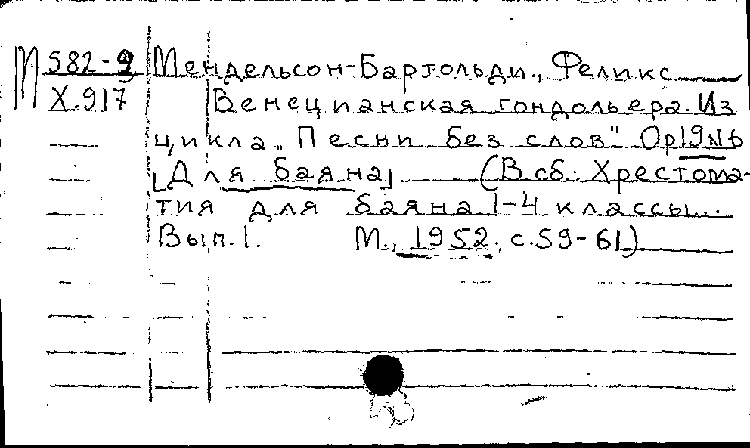 М 582-9 Мендельсон-Бартольди, Феликс
Х.917 Венецианская гондольера. Из
цикла „Песни без слов" Op19№6
[Для баяна] (В сб: Хрестома-
тия для баяна 1-4 классы...
Вып.1. М., 1952, с.59-61)
53